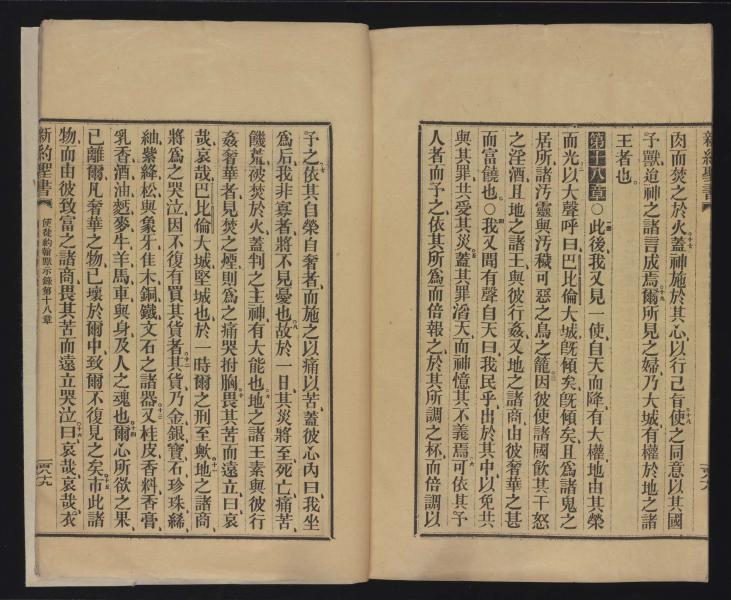 新約聖書
肉而焚之於火蓋神施於其心以行己旨使之同意以其國
予獸迨神之諸言成焉爾所見之婦乃大城有權於地之諸
王者也
第十八章○此後我又見一使自天而降有大權地由其榮
而光以大聲呼曰巴比倫大城旣傾矣旣傾矣且爲諸鬼之
居所諸汚靈與汚穢可惡之鳥之籠因彼使諸國飮其干怒
之淫酒且地之諸王與彼行姦又地之諸商由彼奢華之甚
而富饒也○我又聞有聲自天曰我民乎出於其中以免共
與其罪共受其災蓋其罪滔天而神憶其不義焉可依其予
人者而予之依其所爲而倍報之於其所調之杯而倍調以
予之依其自榮自奢者而施之以痛以苦蓋彼心內曰我坐
爲后我非寡者將不見憂也故於一日其災將至死亡痛苦
饑荒被焚於火蓋判之主神有大能也地之諸王素與彼行
姦奢華者見焚之煙則爲之痛哭拊胸畏其苦而遠立曰哀
哉哀哉巴比倫大城堅城也於一時爾之刑至歟地之諸商
將爲之哭泣因不復有買其貨者其貨乃金銀寶石珍珠絺
紬紫絳松與象牙佳木銅鐵文石之諸器又桂皮香料香膏
乳香酒油麪麥牛羊馬車與身及人之魂也爾心所欲之果
已離爾凡奢華之物已壞於爾中致爾不復見之矣市此諸
物而由彼致富之諸商畏其苦而遠立哭泣曰哀哉哀哉衣
新約聖書
使徒約翰默示錄第十八章